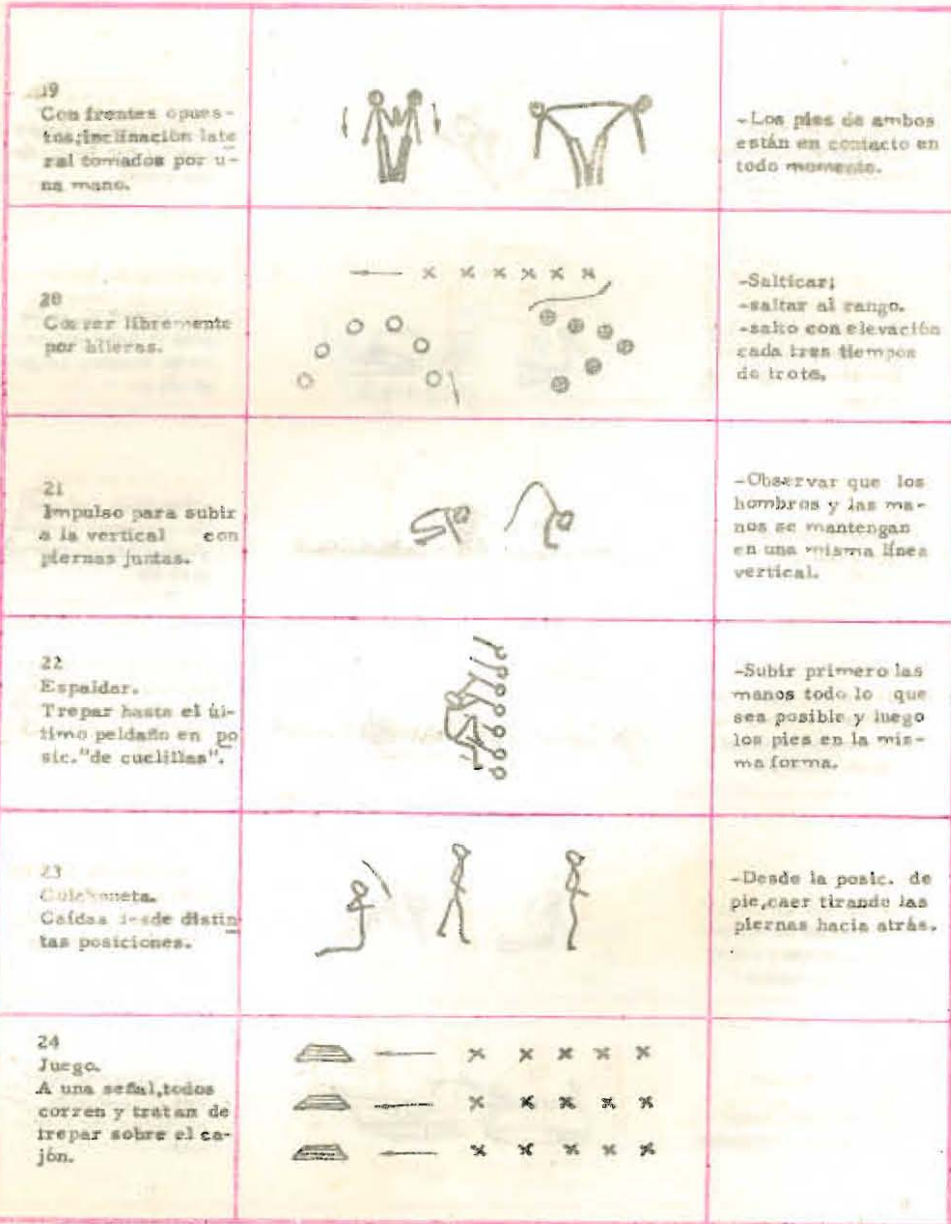 19
Con frentes opues-
tos;inclinación late
ral tomados por u-
na mano.
-Los pies de ambos
están en contacto en
todo momento.
20
Correr libremente
por hileras.
-Salticar;
-saltar al rango.
-salto con elevación
cada tres tiempos
de trote.
21
Impulso para subir
a la vertical con
piernas juntas.
-Observar que los
hombros y las ma-
nos se mantengan
en una misma línea
vertical.
22
Espaldar.
Trepar hasta el úl-
timo peldaño en po
sic."de cuclillas".
-Subir primero las
manos todo lo que
sea posible y luego
los pies en la mis-
ma forma.
23
Colchoneta.
Caídas desde distin
tas posiciones.
-Desde la posic. de
pie,caer tirando las
piernas hacia atrás.
24
Juego.
A una señal,todos
corren y tratan de
trepar sobre el ca-
jón.